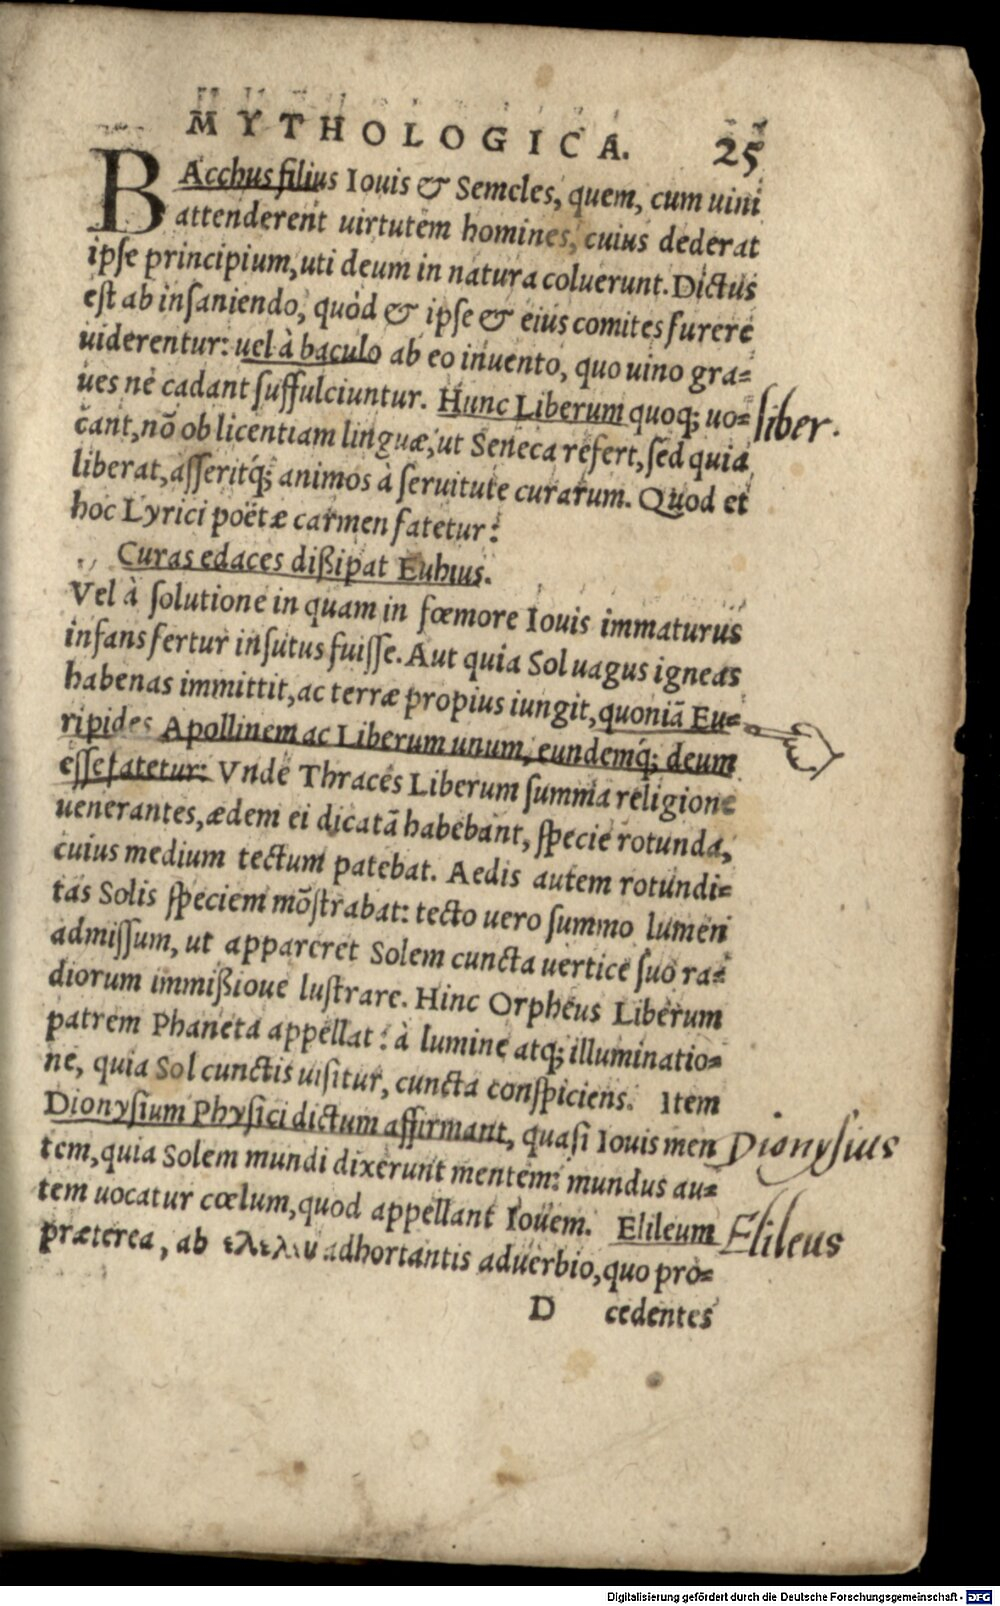 MYTHOLOGICA. 25
BAcchus filius Iouis & Semeles, quem, cum uini
attenderent uirtutem homines, cuius dederat
ipse principium, uti deum in natura coluerunt. Dictus
est ab insaniendo, quòd & ipse & eius comites furere
uiderentur: uel à baculo ab eo inuento, quo uino gra=
ues ne cadant suffulciuntur. Hunc Liberum quoq; uo=
liber.
cant, nõ ob licentiam linguæ, ut Seneca refert, sed quia
liberat, asseritq́; animos à seruitute curarum. Quod et
hoc Lyrici poëtæ carmen fatetur:
Curas edaces dißipat Euhius.
Vel à solutione in quam in fœmore Iouis immaturus
infans fertur insutus fuisse. Aut quia Sol uagus igneas
habenas immittit, ac terræ propius iungit, quoniã Eu=
ripides Apollinem ac Liberum unum, eundemq́; deum
esse fatetur: Vnde Thraces Liberum summa religione
uenerantes, ædem ei dicatã habebant, specie rotunda,
cuius medium tectum patebat. Aedis autem rotundi=
tas Solis speciem mõstrabat: tecto uero summo lumen
admissum, ut appareret Solem cuncta uertice suo ra=
diorum immißioue lustrare. Hinc Orpheus Liberum
patrem Phaneta appellat: à lumine atq; illuminatio=
ne, quia Sol cunctis uisitur, cuncta conspiciens. Item
Dionysium Physici dictum affirmant, quasi Iouis men
Dionysius
tem, quia Solem mundi dixerunt mentem: mundus au=
tem uocatur cœlum, quod appellant Iouem. Elileum
Elileus
præterea, ab ελελευ adhortantis aduerbio, quo pro=
D cedentes
Digitalisierung gefördert durch die Deutsche Forschungsgemeinschaft - DFG